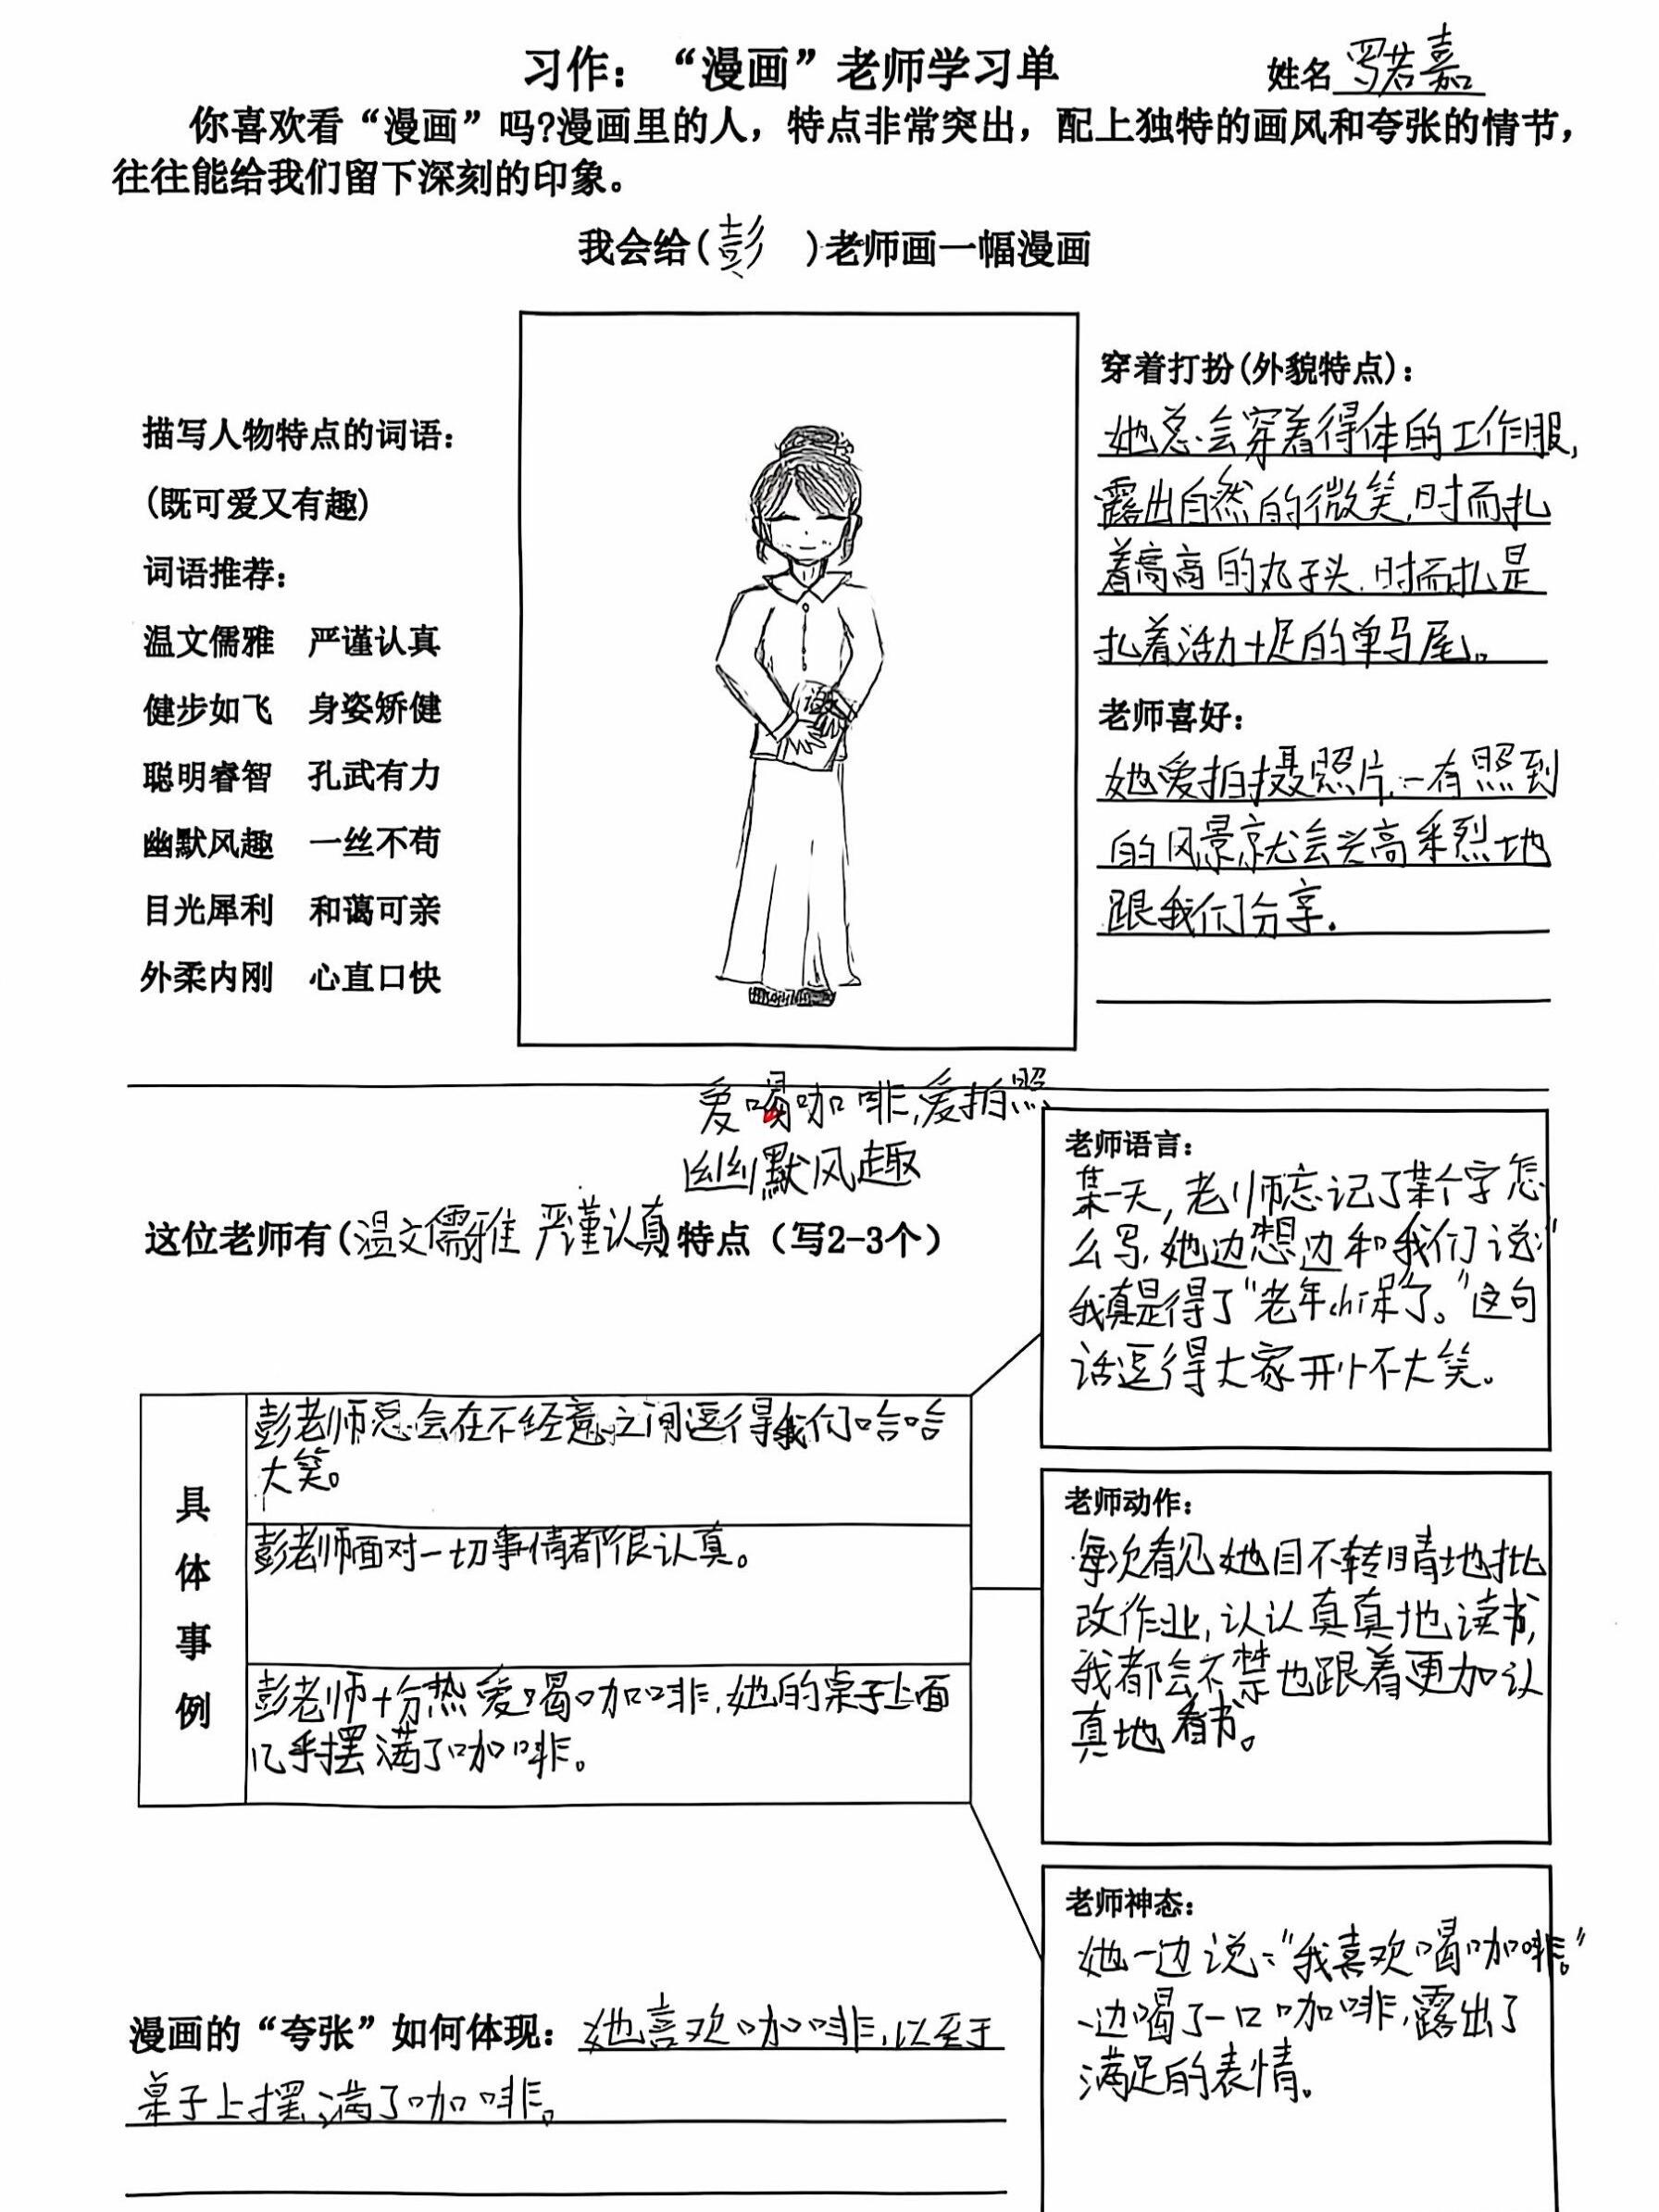 习作：“漫画”老师学习单
姓名 罗若嘉
你喜欢看“漫画”吗?漫画里的人，特点非常突出，配上独特的画风和夸张的情节，
往往能给我们留下深刻的印象。
我会给(彭 )老师画一幅漫画
描写人物特点的词语：
(既可爱又有趣)
词语推荐：
温文儒雅 严谨认真
健步如飞 身姿矫健
聪明睿智 孔武有力
幽默风趣 一丝不苟
目光犀利 和蔼可亲
外柔内刚 心直口快
穿着打扮(外貌特点)：
她总会穿着得体的工作服,
露出自然的微笑,时而扎
着高高的丸子头,时而扎是
扎着活力十足的单马尾。
老师喜好：
她爱拍摄照片,一有照到
的风景就会兴高采烈地
跟我们分享.
爱喝咖啡,爱拍照
幽默风趣
这位老师有(温文儒雅 严谨认真)特点（写2-3个）
具体事例
彭老师总会在不经意之间逗得我们哈哈
大笑。
彭老师面对一切事情都很认真。
彭老师十分热爱喝咖啡,她的桌子上面
几乎摆满了咖啡。
老师语言：
某一天,老师忘记了某个字怎
么写,她边想边和我们说:“
我真是得了“老年chi呆了。”这句
话逗得大家开怀大笑。
老师动作：
每次看见她目不转睛地批
改作业,认认真真地读书,
我都会不禁也跟着更加认
真地看书。
老师神态：
她一边说:“我喜欢喝咖啡。”
一边喝了一口咖啡,露出了
满足的表情.
漫画的“夸张”如何体现：她喜欢咖啡,以至于
桌子上摆满了咖啡。